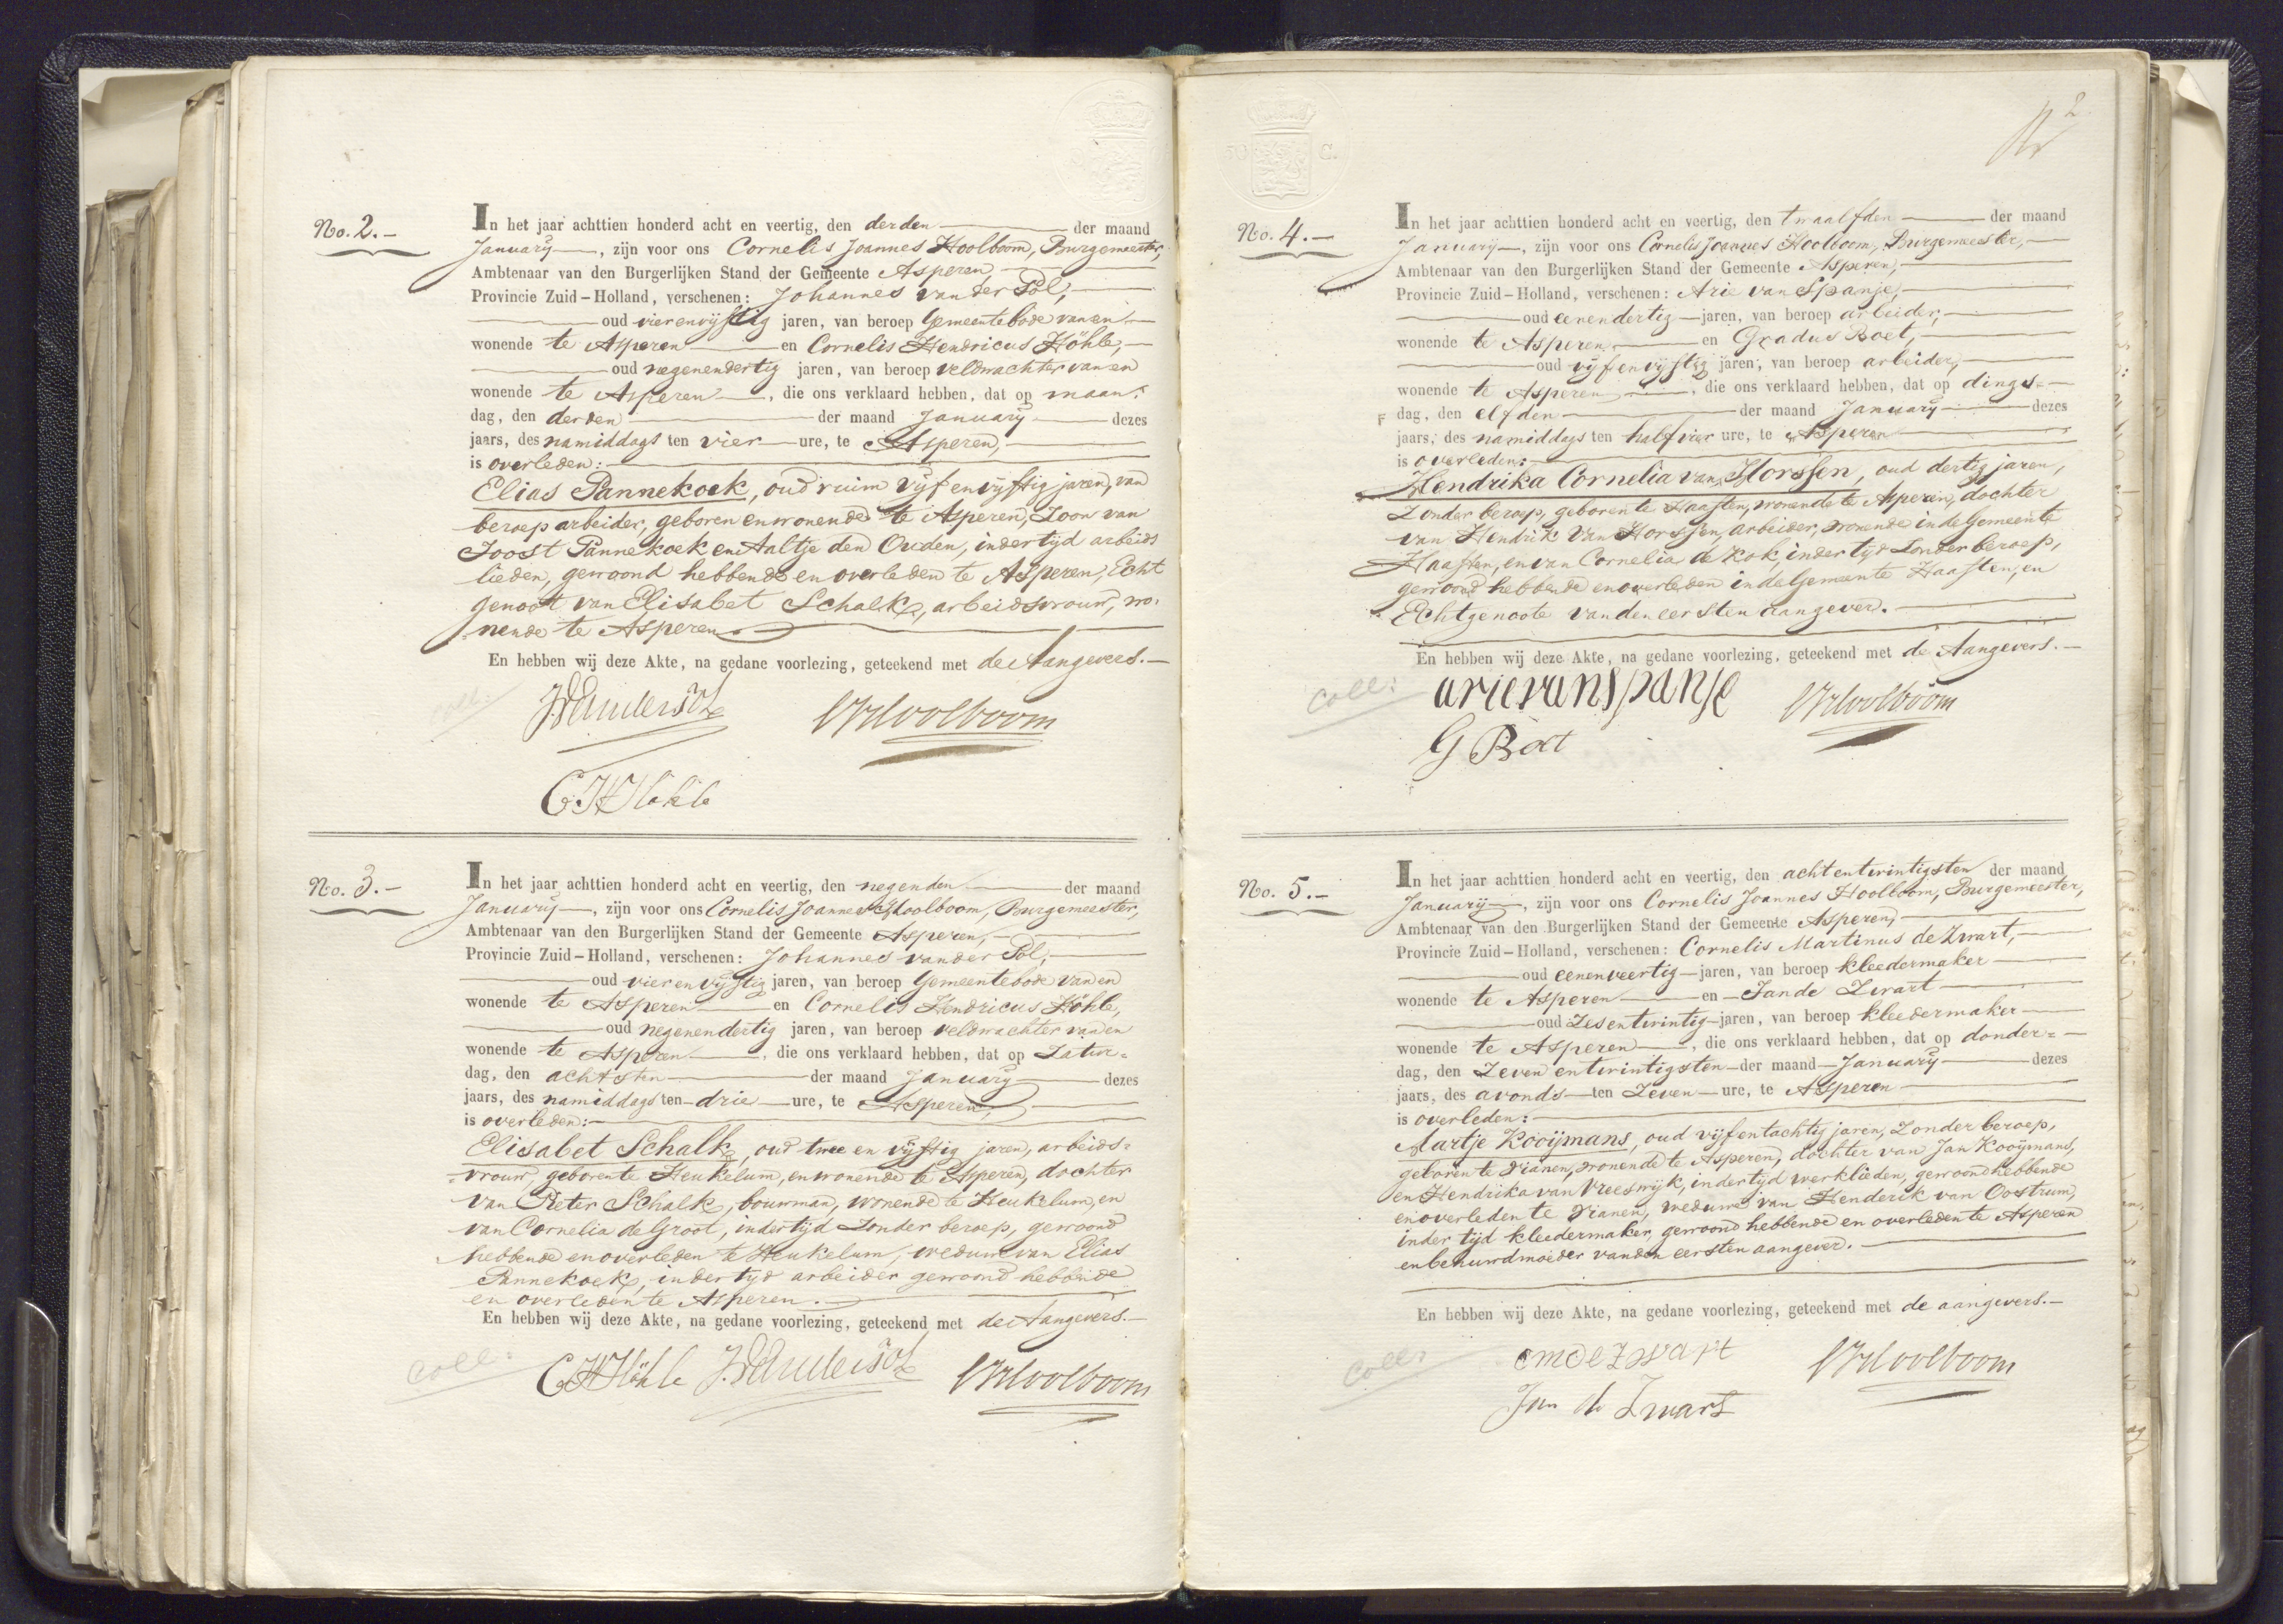 No. 2.-
In het jaar achttien honderd acht en veertig, den derden der maand
January, zijn voor ons Cornelis Joannes Hoolboom, Burgemeester,
Ambtenaar van den Burgerlijken Stand der Gemeente Asperen,
Provincie Zuid-Holland, verschenen: Johannes van der Pol,
oud vierenvijftig jaren, van beroep Gemeentebode van en
wonende te Asperen en Cornelis Hendricus Höhle,
oud negenendertig jaren, van beroep veldwachter van en
wonende te Asperen, die ons verklaard hebben, dat op maan=
dag, den derden der maand January dezes
jaars, des namiddags ten vier ure, te Asperen,
is overleden:
Elias Pannekoek, oud ruim vijf en vijftig jaren, van
beroep arbeider, geboren en wonende te Asperen, Zoon van
Joost Pannekoek en Aaltje den Ouden, indertijd arbeids
lieden, gewoond hebbende en overleden te Asperen, Echt
genoot van Elisabet Schalk, arbeidsvrouw, wo.
nende te Asperen.
En hebben wij deze Akte, na gedane voorlezing, geteekend met de Aangevers.-
coll:
JVanderPol
CJHoolboom
CHHöhle
No. 3.-
In het jaar achttien honderd acht en veertig, den negenden der maand
January, zijn voor ons Cornelis Joannes Hoolboom, Burgemeester,
Ambtenaar van den Burgerlijken Stand der Gemeente Asperen,
Provincie Zuid-Holland, verschenen: Johannes van der Pol,
oud vier en vijftig jaren, van beroep Gemeentebode van en
wonende te Asperen en Cornelis Hendricus Höhle,
oud negenendertig jaren, van beroep veldwachter van en
wonende te Asperen, die ons verklaard hebben, dat op Zatur=
dag, den achtsten der maand January dezes
jaars, des namiddags ten drie ure, te Asperen,
is overleden:-
Elisabet Schalk, oud twee en vijftig jaren, arbeids=
=vrouw, geboren te Heukelum, en wonende te Asperen, dochter
van Pieter Schalk, bouwman, wonende te Heukelum, en
van Cornelia de Groot, indertijd Zonder beroep, gewoond
hebbende en overleden te Heukelum, weduwe van Elias
Pannekoek, indertijd arbeider gewoond hebbende
en overleden te Asperen.
En hebben wij deze Akte, na gedane voorlezing, geteekend met de Aangevers.-
coll:
CHHöhle J.VanderPol CJHoolboom
2
50 C.
No. 4.-
In het jaar achttien honderd acht en veertig, den twaalfden der maand
January, zijn voor ons Cornelis Joannes Hoolboom, Burgemeester,
Ambtenaar van den Burgerlijken Stand der Gemeente Asperen,
Provincie Zuid-Holland, verschenen: Arie van Spanje,
oud eenendertig jaren, van beroep arbeider,
wonende te Asperen en Gradus Boet,
oud vijfenvijftig jaren, van beroep arbeider,
wonende te Asperen, die ons verklaard hebben, dat op dings=
dag, den elfden der maand January dezes
jaars, des namiddags ten half vier ure, te Asperen
is overleden:
Hendrika Cornelia van Horssen, oud dertig jaren,
Zonder beroep, geboren te Haaften, wonende te Asperen, dochter
van Hendrik van Horssen, arbeider, wonende in de Gemeente
Haaften, en van Cornelia de Kok, indertijd Zonder beroep,
gewoond hebbende en overleden in de Gemeente Haaften, en
Echtgenoote van den eersten aangever.
En hebben wij deze Akte, na gedane voorlezing, geteekend met de Aangevers.-
coll:
arievanspanje
CJHoolboom
G Boet
No. 5.-
In het jaar achttien honderd acht en veertig, den achtentwintigsten der maand
January, zijn voor ons Cornelis Joannes Hoolboom, Burgemeester,
Ambtenaar van den Burgerlijken Stand der Gemeente Asperen,
Provincie Zuid-Holland, verschenen: Cornelis Martinus de Zwart,
oud eenenveertig jaren, van beroep kleedermaker
wonende te Asperen en Jan de Zwart
oud Zesentwintig jaren, van beroep kleedermaker
wonende te Asperen, die ons verklaard hebben, dat op donder=
dag, den Zevenentwintigsten der maand January dezes
jaars, des avonds ten Zeven ure, te Asperen
is overleden:
Aartje Kooijmans, oud vijfentachtig jaren, Zonder beroep,
geboren te Vianen, wonende te Asperen, dochter van Jan Kooijmans,
en Hendrika van Vreeswijk, indertijd werklieden, gewoond hebbende
en overleden te Vianen, weduwe van Henderik van Oostrum,
inder tijd kleedermaker, gewoond hebbende en overleden te Asperen
en behuwdmoeder van den eersten aangever.
En hebben wij deze Akte, na gedane voorlezing, geteekend met de aangevers.-
coll:
cmdezwart
CJHoolboom
Jan de Zwart